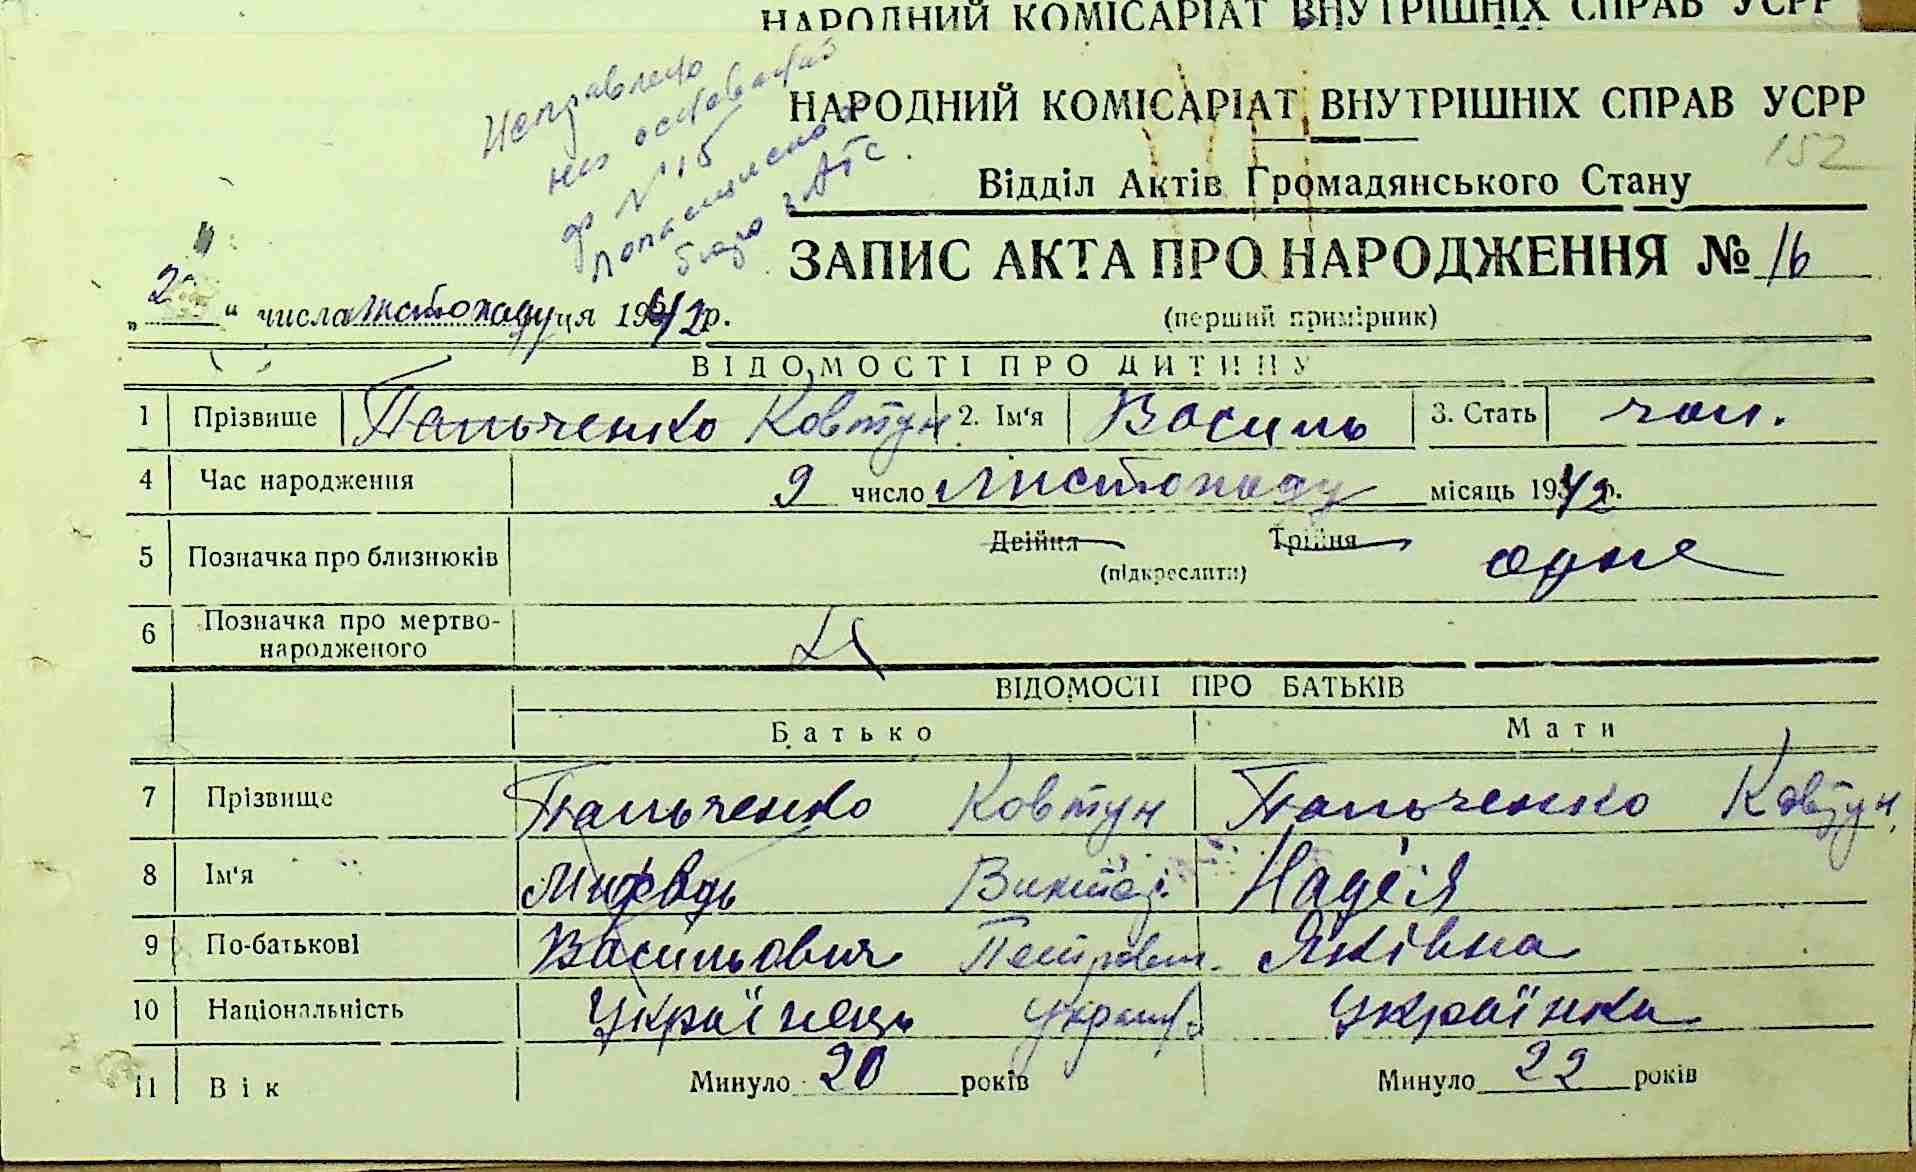 НАРОДНИЙ КОМІСАРІАТ ВНУТРІШНІХ СПРАВ УСРР
Исправлено
на основаній
ф N 15
бюро ЗАГС.
НАРОДНИЙ КОМІСАРІАТ ВНУТРІШНІХ СПРАВ УСРР
152
Відділ Актів Громадянського Стану
ЗАПИС АКТА ПРО НАРОДЖЕННЯ № 16
(перший примірник)
„ “ числа листопаду ця 1942 р.
ВІДОМОСТІ ПРО ДИТИНУ
1 Прізвище Пальченко Ковтун 2. Ім'я Василь 3. Стать чол.
4 Час народження 9 число Листопаду місяць 1942 р.
5 Позначка про близнюків Двійня Трійня одне
(підкреслити)
6 Позначка про мертво-
народженого
ВІДОМОСТІ ПРО БАТЬКІВ
Батько Мати
7 Прізвище Пальченко Ковтун Пальченко Ковтун
8 Ім'я Надія
9 По-батькові Васильович Петрович. Яківна
10 Національність Українець Українка
11 Вік Минуло 20 років Минуло 22 років